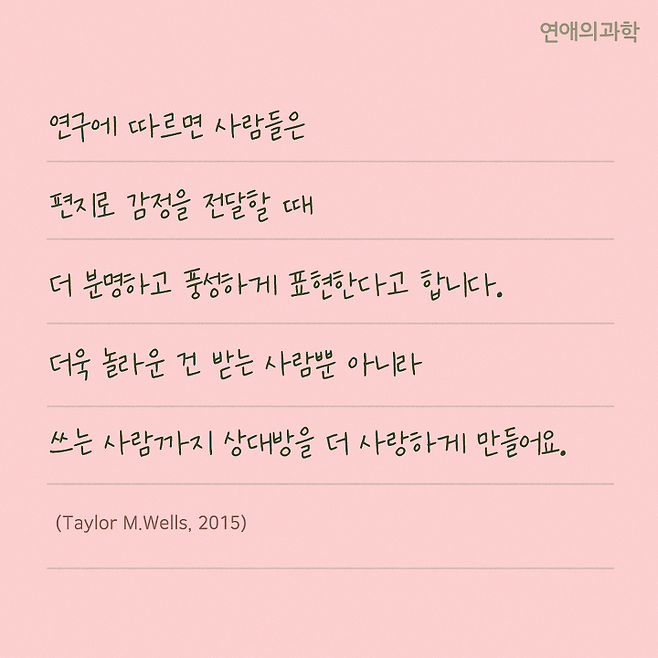 연애의과학
연구에 따르면 사람들은
편지로 감정을 전달할 때
더 분명하고 풍성하게 표현한다고 합니다.
더욱 놀라운 건 받는 사람뿐 아니라
쓰는 사람까지 상대방을 더 사랑하게 만들어요.
(Taylor M.Wells, 2015)